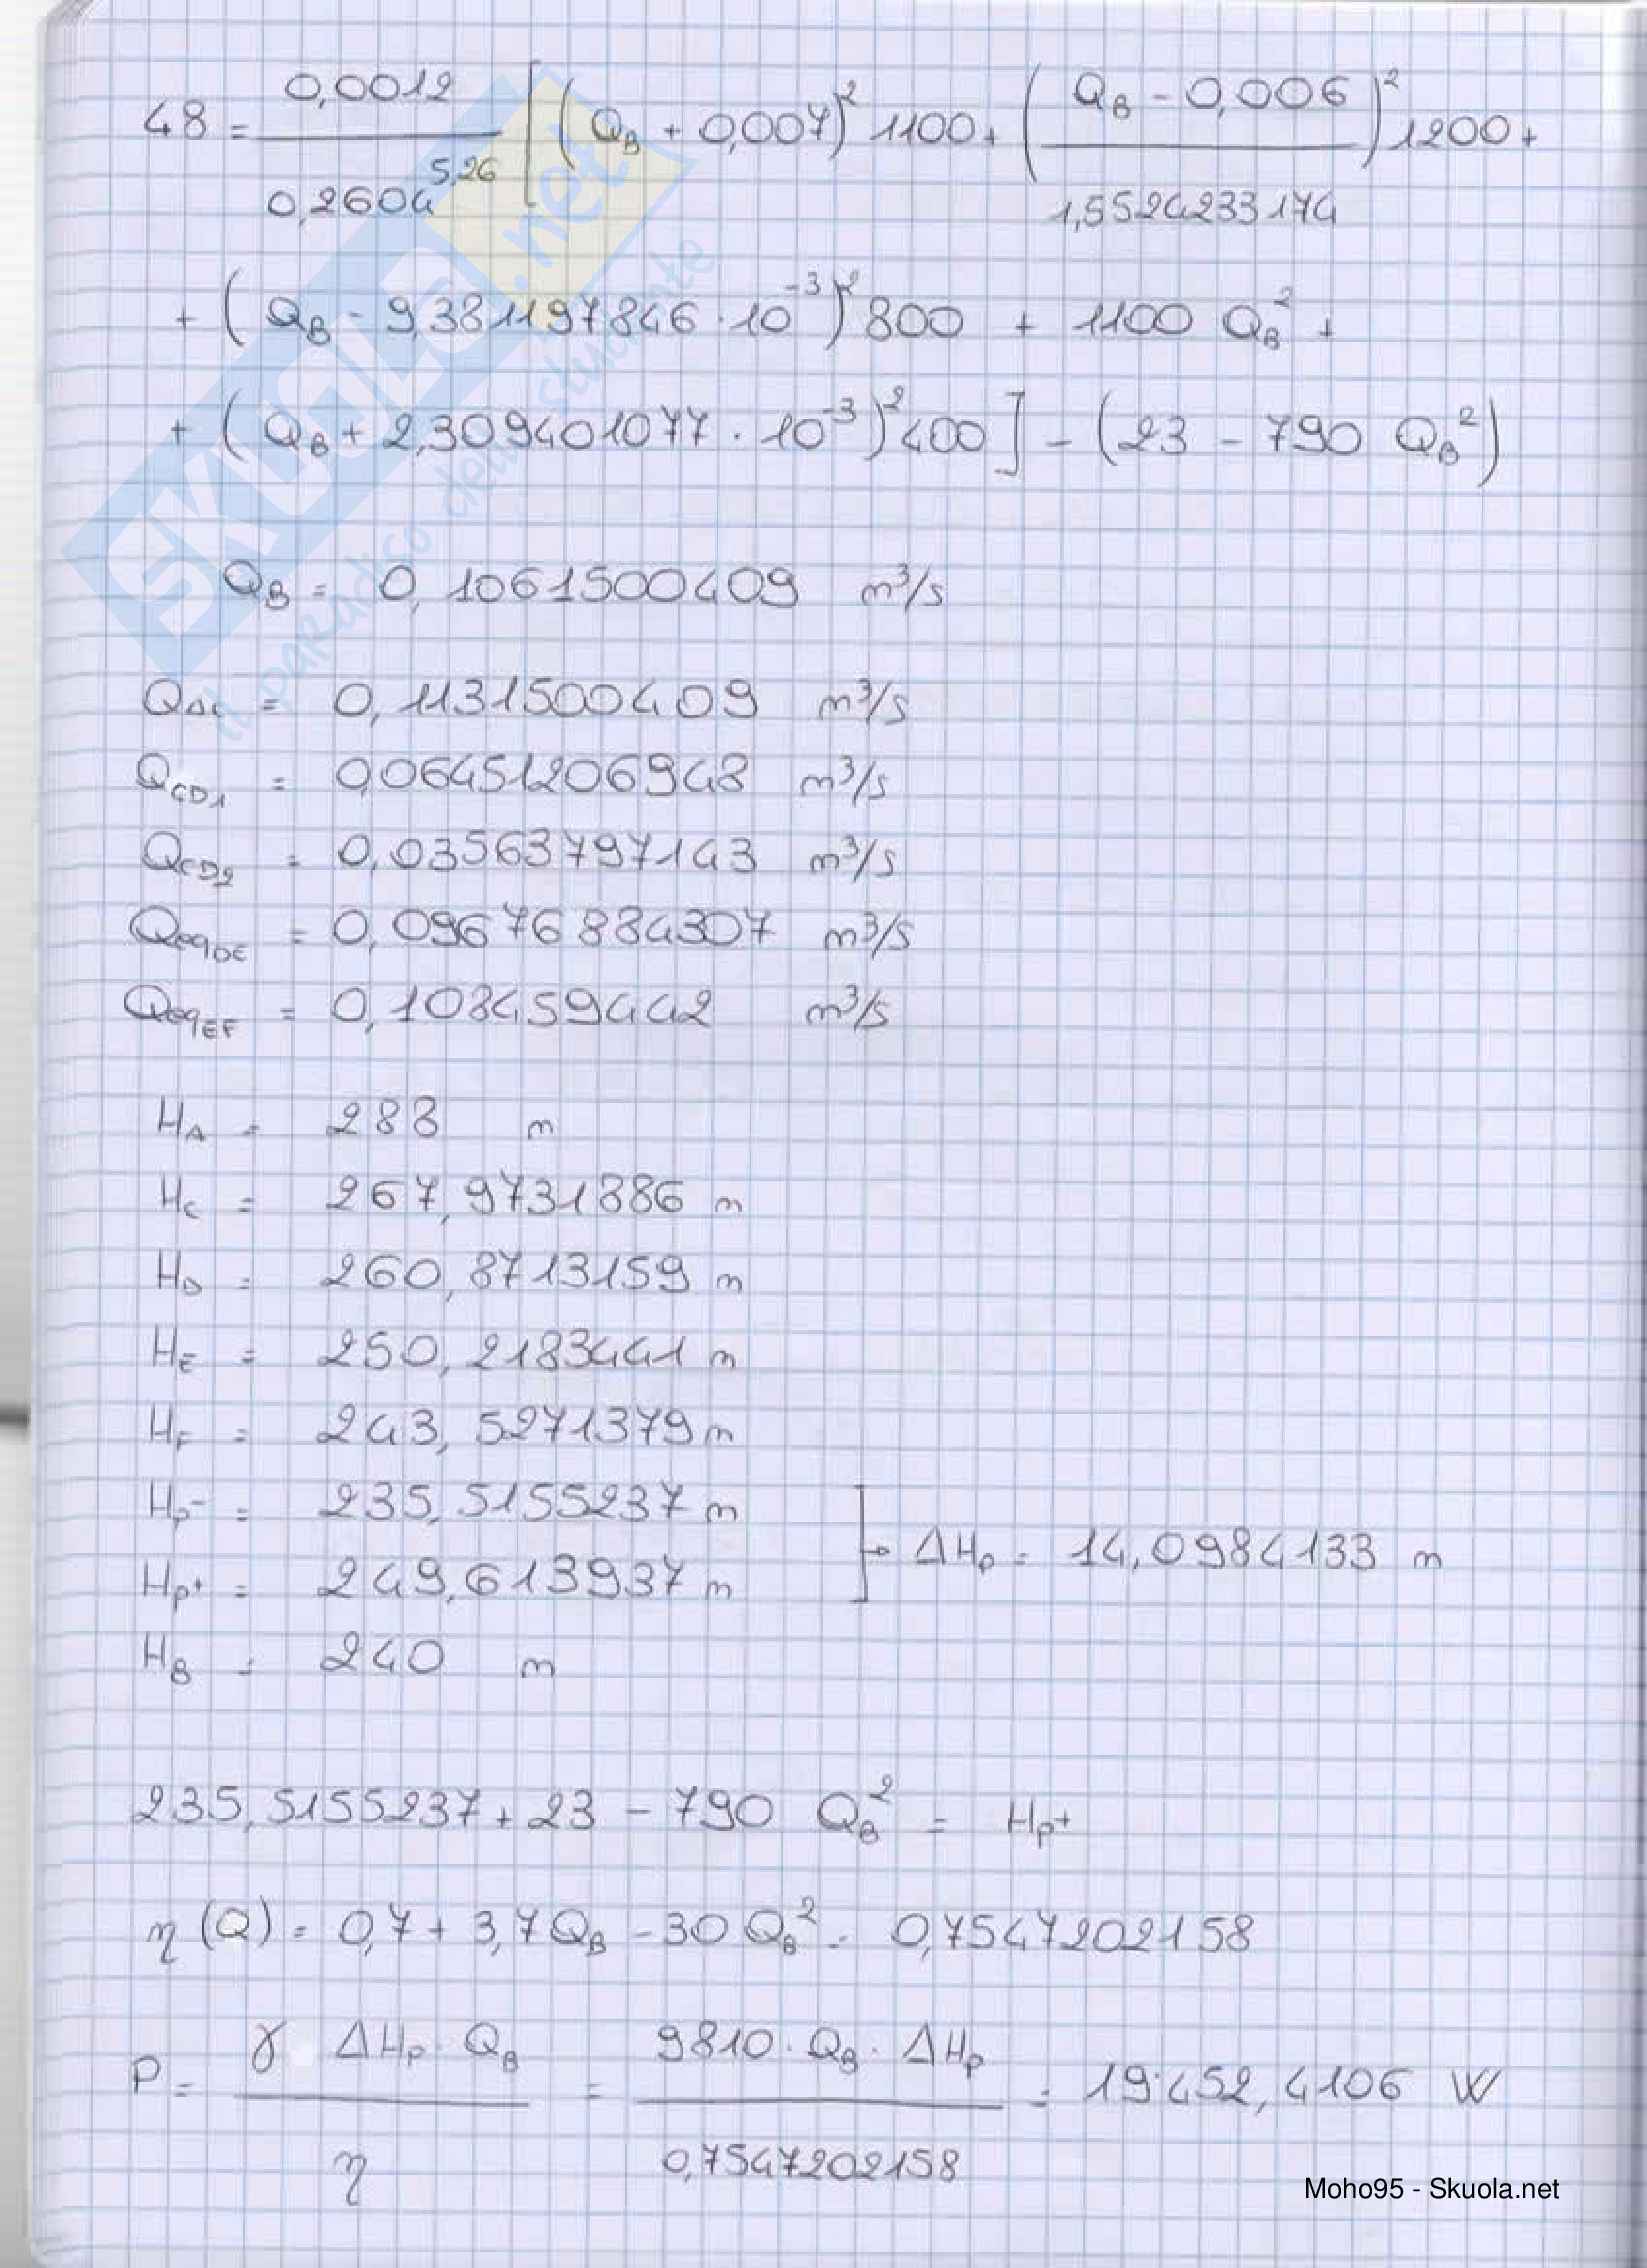 48 = 0,0012 / 0,2604^5,26 [ (Q_B + 0,007)^2 1100 + ( (Q_B - 0,006) / 1,5524233174 )^2 1200 +
+ ( Q_B - 9,381197846 · 10^-3 )^2 800 + 1100 Q_B^2 +
+ ( Q_B + 2,309401077 · 10^-3 )^2 400 ] - (23 - 790 Q_B^2)
Q_B = 0,1061500409 m³/s
Q_AC = 0,1131500409 m³/s
Q_CD1 = 0,06451206943 m³/s
Q_CD2 = 0,03563797143 m³/s
Q_eqDE = 0,09676884307 m³/s
Q_eqEF = 0,108459442 m³/s
H_A = 288 m
H_C = 267,9731886 m
H_D = 260,8713159 m
H_E = 250,2183441 m
H_F = 243,5271379 m
H_P- = 235,5155237 m
H_P+ = 249,613937 m
ΔH_P = 14,0984133 m
H_B = 240 m
235,5155237 + 23 - 790 Q_B^2 = H_P+
η (Q) = 0,7 + 3,7 Q_B - 30 Q_B^2 = 0,7547202158
P = γ ΔH_P · Q_B / η = 9810 · Q_B · ΔH_P / 0,7547202158 = 19'452,4106 W
SKUOLA.net
il paradiso dello studente
Moho95 - Skuola.net